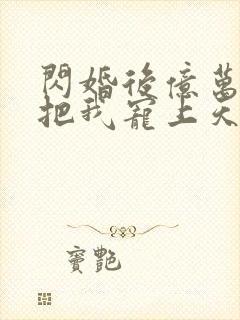 閃婚後億萬
把我寵上天
寶艷